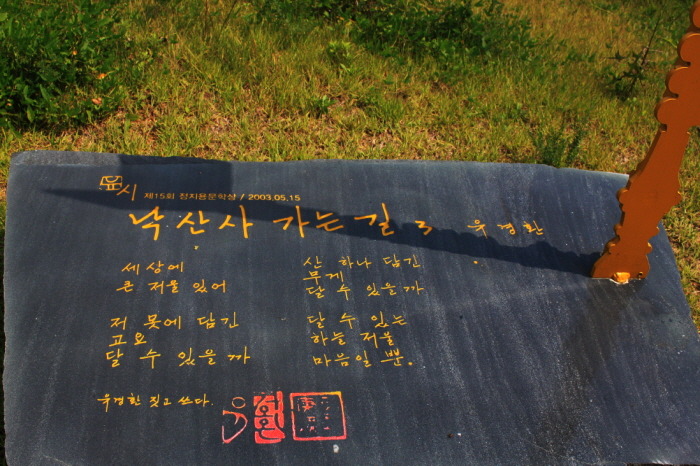 시 제15회 정지용문학상 / 2003.05.15
낙산사 가는 길 3 유경환
세상에
큰 저울 있어
저 못에 담긴
고요
달 수 있을까
산 하나 담긴
무게
달 수 있을까
달 수 있는
하늘 저울
마음일 뿐.
유경환 짓고 쓰다.